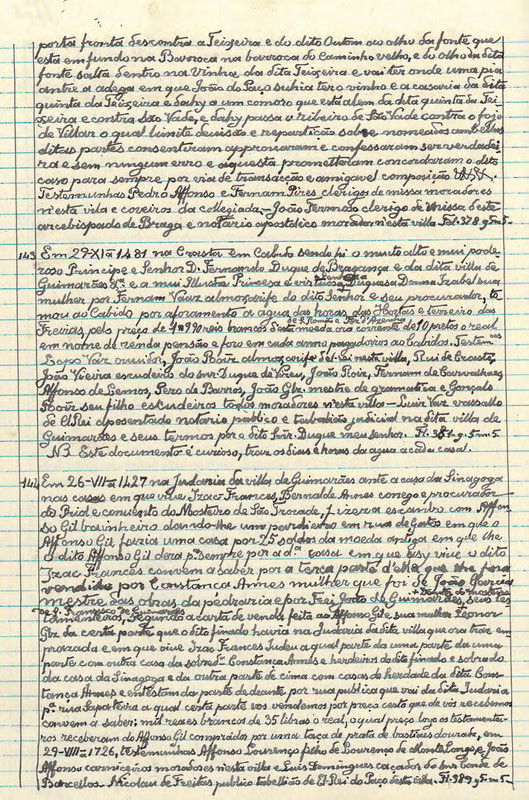 porta fronta descontra a Teixeira e do dito Outam ou olho da fonte que
está em fundo na Barroca na barroca do Caminho velho, e do olho da dita
fonte salta dentro na Vinha da dita Teixeira e vai ter onde uma pia
antre a adega em que João do Paço suhia ter o vinho e a casaria da dita
quinta da Teixeira e dahy a um comoro que está alem da dita quinta da Tei-
xeira e contra São Vade, e dahy passa o ribeiro de São Vade contra o fojo
de Villar o qual limite devisão e repartição sobre nomeados amballas
ditas partes consentiram approvaram e confessaram ser verdadei-
ra e sem ningum erro e aquesta prometteram concordaram o dito
caso para sempre por via de transacção e amigavel composição
Testemunhas Pedro Affonso e Fernam Pires clerigos de missa moradores
n'esta villa e coreiros da collegiada. João Fermoso clerigo de Missa d'este
arcebispado de Braga e notario apostolico morador n'esta villa Fl. 378 g. 5 m 5-
143 Em 29-XI-1481 na Crasta em Cabido sendo hi o muito alto e mui pode-
roso Principe e Senhor D. Fernando Duque de Bragança e da dita villa de
Guimarães &ª e a mui Illustre Princesa e virtuosa Duquesa Donna Izabel sua
mulher por Fernam Vaaz almoxarife do dito Senhor e seu procurador, to-
mou ao Cabido por aforamento a agua das hortas e terreiro das
Freiras, pelo preço de reis brancos desta moeda ora corrente de 10 pretos o real
em nome de renda pensão e foro em cada anno pagadoiros ao Cabido. Testemªs
Lopo Vaz ouvidor, João Roiz almoxarife d'el-rei nesta villa, Rui de Crasto,
João Vieira escudeiro do snr Duque de Vizeu, João Roiz, Fernam de Carvalhaes,
Affonso de Lemos, Pero de Barros, João Glz. mestre de gramatica e Gonçalo
Roiz seu filho escudeiros todos moradores n'esta villa - Luiz Vaz vassallo
de El Rei aposentado notario publico e tabalião judicial na dita villa de
Guimarães e seus termos por o dito Snr. Duque meu senhor. Fl. 381 g. 5 m 5
NB. Este documento é curioso, traz os dias e horas da agua a cada casal.
144 Em 26-VII-1427 na Judaria da villa de Guimarães ante a casa da Sinagoga
nas casas em que vive Izac Frances, Bernald'Annes conego e procurador
do Priol e convento do Mosteiro de São Trocade, fizera escanbo com Affon-
so Gil bainheiro dando-lhe um pardieiro em rua de Gatos em que o
Affonso Gil fazia uma casa por 25 soldos da moeda antiga em que lhe
o dito Affonso Gil dera pª sempre por a dª casa em que assy vive o dito
Izac Frances convem a saber por a terça parte d'ella que lhe fora
vendida por Constança Annes mulher que foi de João Garcia
mestre das obras da pedraria e por Frei João de Guimarães seus tes-
+ Donato do mosteiro
de S. Francisco de Guimarães
tamenteiros, segundo a carta de venda feita ao Affonso Gil e sua mulher Leonor
Glz. da certa parte que o dito finado havia na Judaria da dita villa que ora traz em-
prazada e em que vive Izac Frances Judeu a qual parte da uma parte da uma
parte com outra casa da sobredª Constança Annes e herdeiros do dito finado e sobrado
da casa da Sinagoga e da outra parte de cima com casas de herdade da dita Cons-
tança Annes e entestam da parte de deante por rua publica que vai da dita Judaria
pª rua Sapateira a qual certa parte vos vendemos por preço certo que de vós recebemos
convem a saber: mil reaes brancos de 35 libras o real, o qual preço logo os testamentei-
ros receberam do Affonso Gil comprador por uma taça de prata de bastiães dourada, em
29-VIII-1726, testemunhas Affonso Lourenço filho de Lourenço de Monte Longo e João
Affonso carniceiro moradores nesta villa e Luis Domingues caçador do snr Conde de
Barcellos. Nicolau de Freitas publico tabellião de El-Rei do Paço desta villa. Fl. 389 g. 5 m 5-